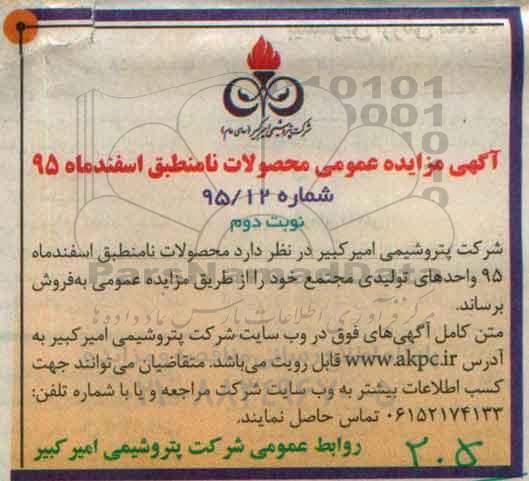 شرکت پتروشیمی امیرکبیر (سهامی عام)
آگهی مزایده عمومی محصولات نامنطبق اسفندماه ۹۵
شماره ۹۵/۱۲
نوبت دوم
شرکت پتروشیمی امیرکبیر در نظر دارد محصولات نامنطبق اسفندماه
۹۵ واحدهای تولیدی مجتمع خود را از طریق مزایده عمومی به‌فروش
برساند.
متن کامل آگهی‌های فوق در وب سایت شرکت پتروشیمی امیرکبیر به
آدرس www.akpc.ir قابل رویت می‌باشد. متقاضیان می‌توانند جهت
کسب اطلاعات بیشتر به وب سایت شرکت مراجعه و یا با شماره تلفن:
۰۶۱۵۲۱۷۴۱۳۳ تماس حاصل نمایند.
روابط عمومی شرکت پتروشیمی امیرکبیر
۲۰۵
ParsNamadData